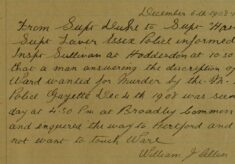 December 6th 1908
From Supt Duke to Supt
Supt Laver Essex Police informed
Insp. Sullivan at Hoddesdon at 10
that a man answering the discription of
Ward wanted for Murder by the
Police Gazette Dec 4th 1908 was seen
day at 4.30 P.m at Broadly Common
and enquired the way to Hertford and
not want to touch Ware
William J Allen